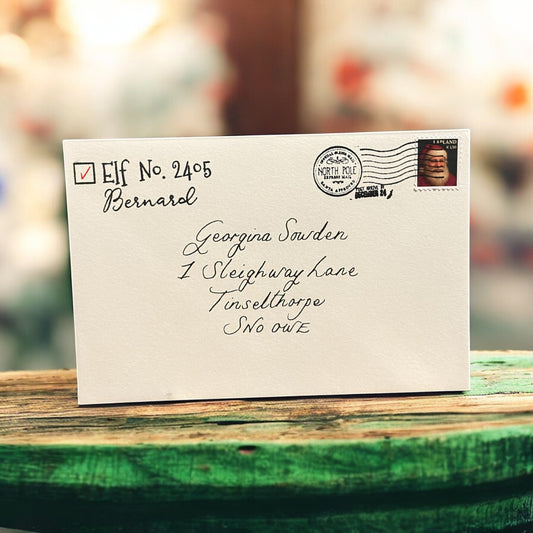 Elf No. 2405
Bernard
NORTH POLE
LAPLAND
DECEMBER 24
Georgina Sowden
1 Sleighway Lane
Tinselthorpe
SN0 0WE